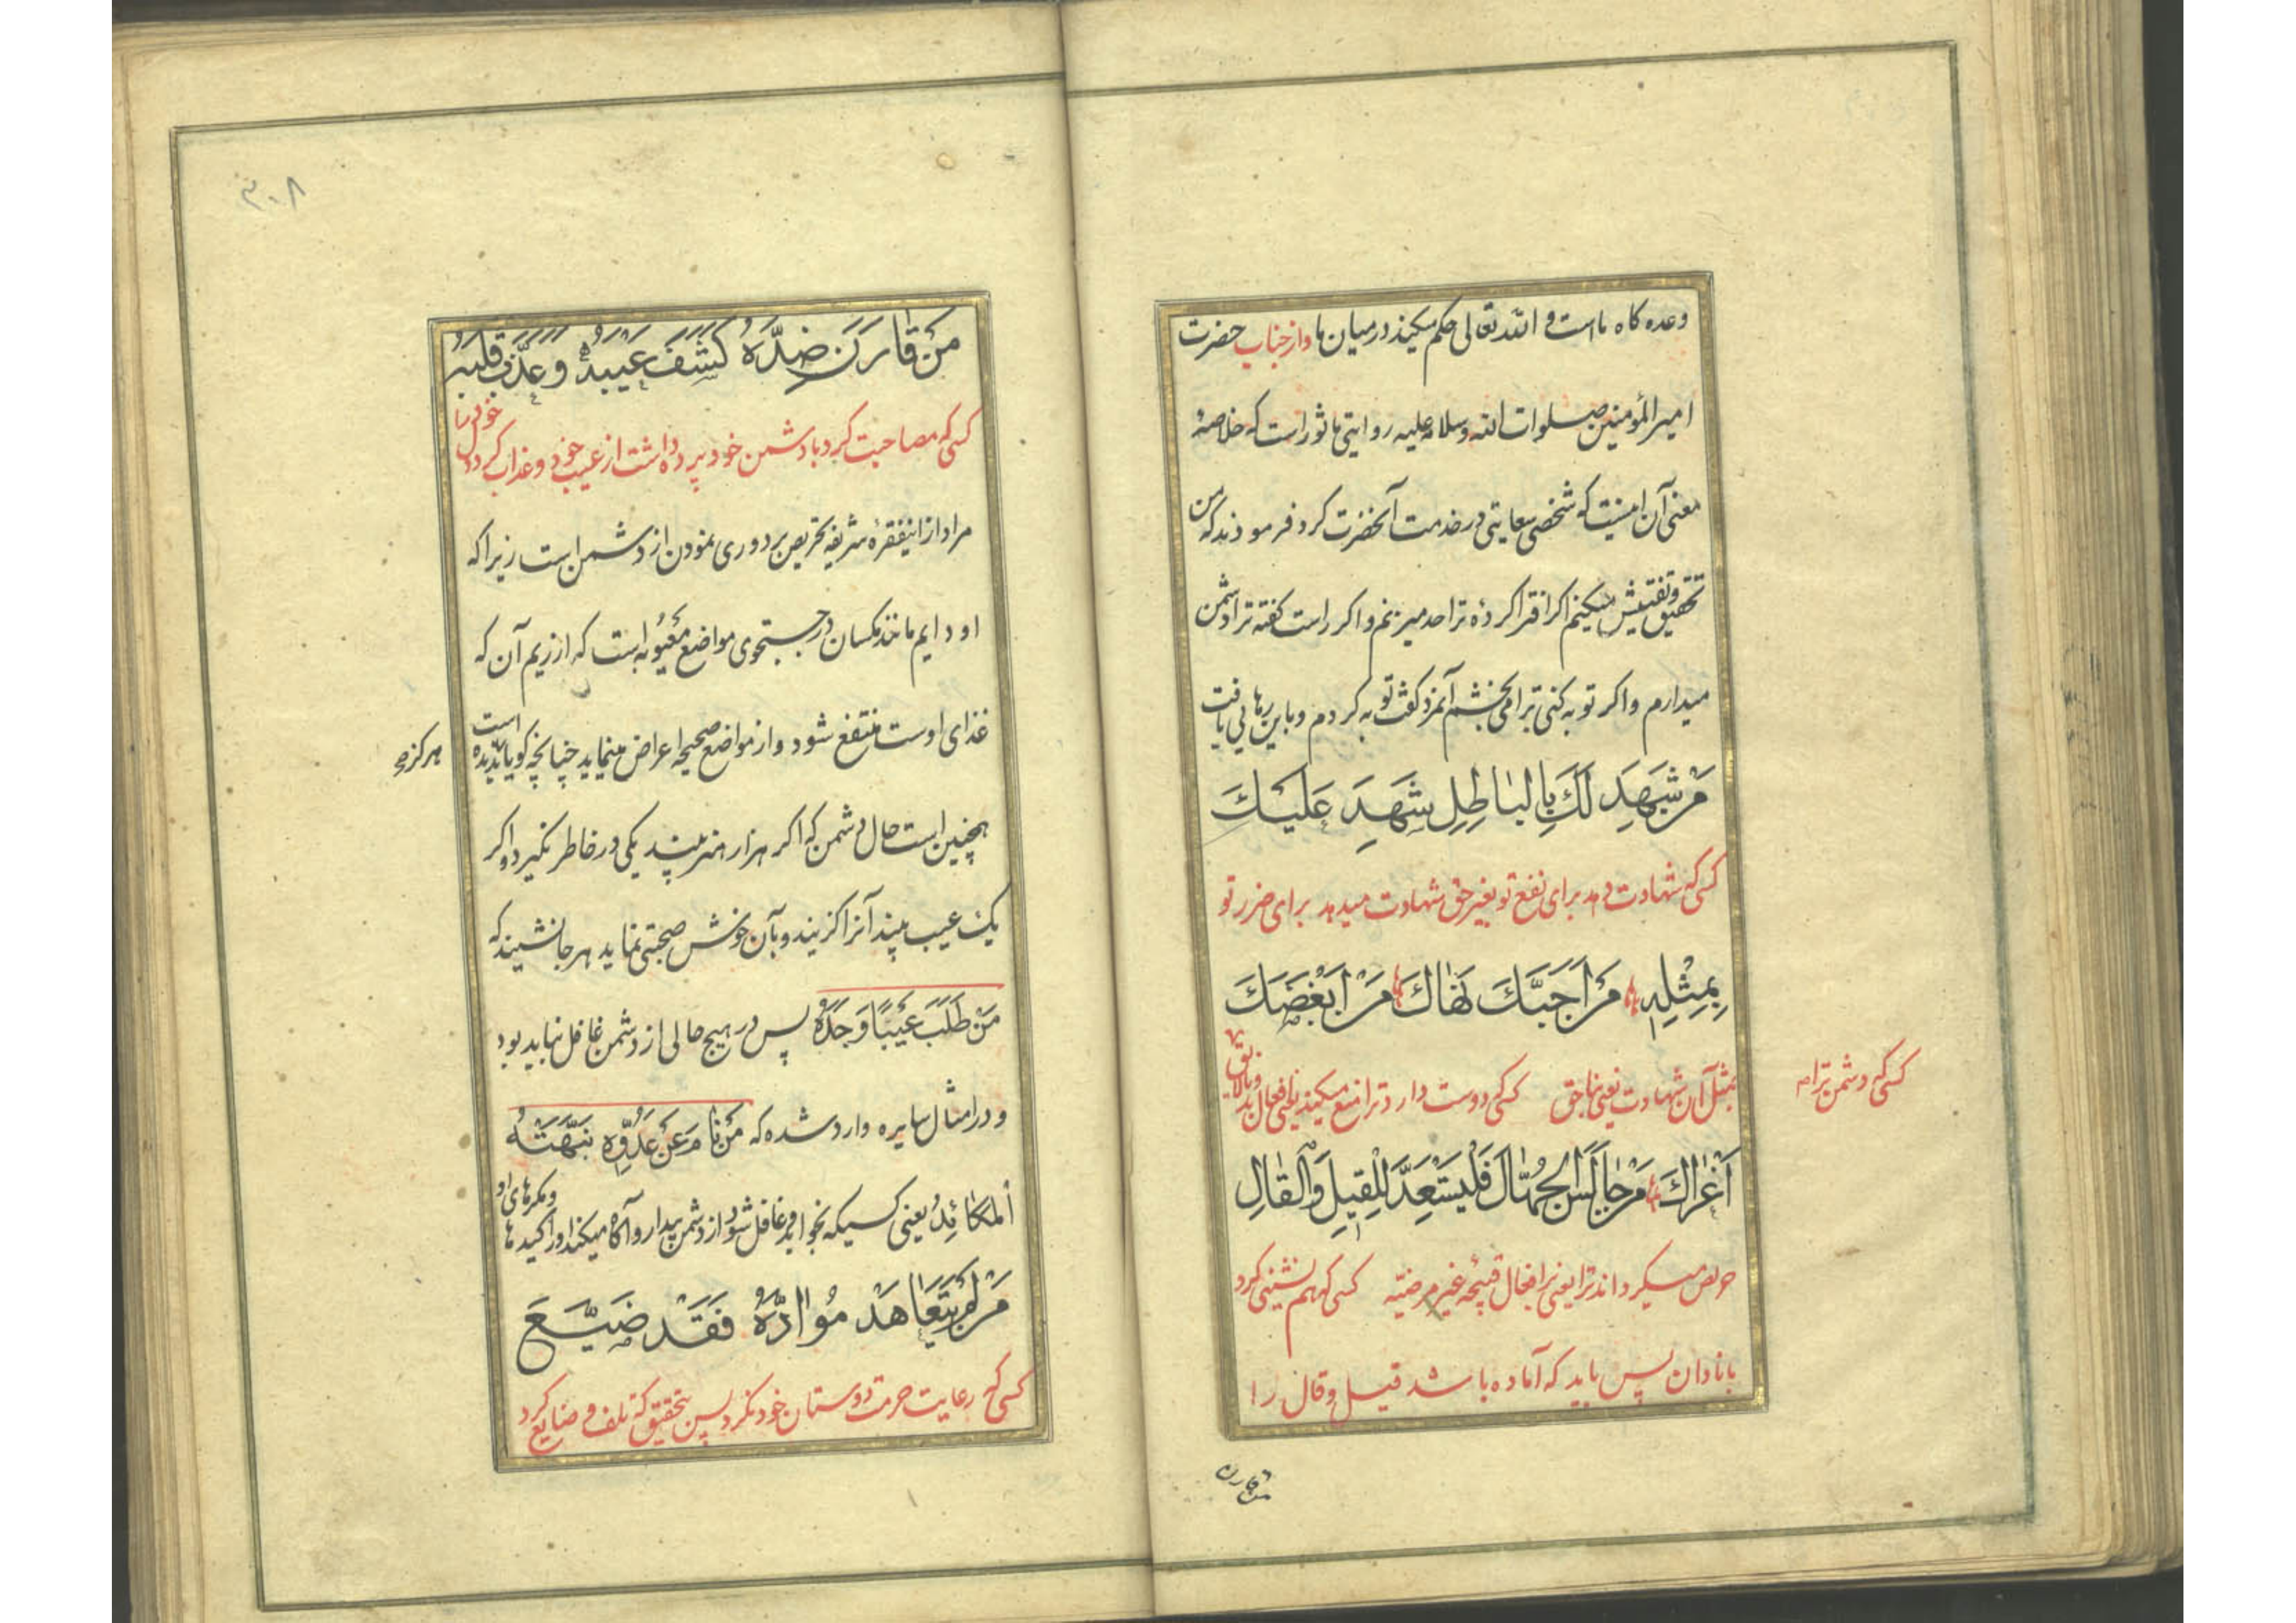 وعده كاه ماست و الله تعالى حكم ميكند در ميان ما واز جناب حضرت
امير المؤمنين صلوات الله وسلامه عليه روايتى ماثور است كه خلاصهٔ
معنى آن اينست كه شخصى سعايتى در خدمت آنحضرت كرد فرمودند كه من
تحقيق وتفتيش ميكنم اكر افترا كردهٔ ترا حد ميزنم واكر راست كفته ترا دشمن
ميدارم واكر توبه كنى ترا مى بخشم آنمرد كفت توبه كردم وباين رهايى يافت
مَنْ شَهِدَ لَكَ بِالبٰاطِلِ شَهِدَ عَلَيْكَ
كسى كه شهادت دهد براى نفع تو بغير حق شهادت ميدهد براى ضرر تو
بِمِثْلِهِ مَنْ اَحَبَّكَ نَهٰاكَ مَنْ اَبْغَضَكَ
بمثل آن شهادت يعنى ناحق كسى كه دوست دارد ترا منع ميكند يعنى از افعال بد ونالايق
كسى كه دشمن ترا
اَغْرٰاكَ مَنْ جٰالَسَ الْجُهّٰالَ فَلْيَسْتَعِدَّ لِلْقِيلِ وَالْقٰالِ
حريص ميكرداند ترا يعنى بر افعال قبيحهٔ غير مرضيّه كسى كه هم نشينى كرد
با نادان پس بايد كه آماده باشد قيل وقال را
من قارن
٣٠٨
مَنْ قٰارَنَ ضِدَّهُ كَشَفَ عَيْبَهُ وَعَذَّبَ قَلْبَهُ
كسى كه مصاحبت كرد با دشمن خود پرده داشت از عيب خود وعذاب كرد دل خود را
مراد از اينفقرهٔ شريفه تحريص بر دورى نمودن از دشمن است زيرا كه
او دايم مانند مكسان در جستجوى مواضع معيوبه است كه از ريم آن كه
غذاى اوست منتفع شود واز مواضع صحيحه اعراض مينمايد چنانچه كويا نديده است
هركز
همچنين است حال دشمن كه اكر هزار هنر بيند يكى در خاطر نكيرد واكر
يك عيب بيند آنرا كزيند وبآن خوش صحبتى نمايد هر جا نشيند كه
مَنْ طَلَبَ عَيْبًا وَجَدَهُ پس در هيچ حالى از دشمن غافل نبايد بود
ودر امثال سايره وارد شده كه مَنْ نٰامَ عَنْ عَدُوِّهِ نَبَّهَتْهُ
اَلْمَكٰائِدُ يعنى كسيكه بخوابد وغافل شود از دشمن بيدار وآكاه ميكند او را كيدها ومكرهاى او
مَنْ لَمْ يَتَعٰاهَدْ مُوٰادَّهُ فَقَدْ ضَيَّعَ
كسى كه رعايت حرمت دوستان خود نكرد پس بتحقيق كه تلف وضايع كرد